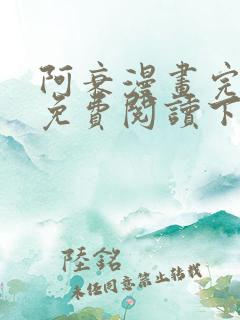 阿衰漫畫完
免費閱讀下
陸銘
未經同意禁止轉載